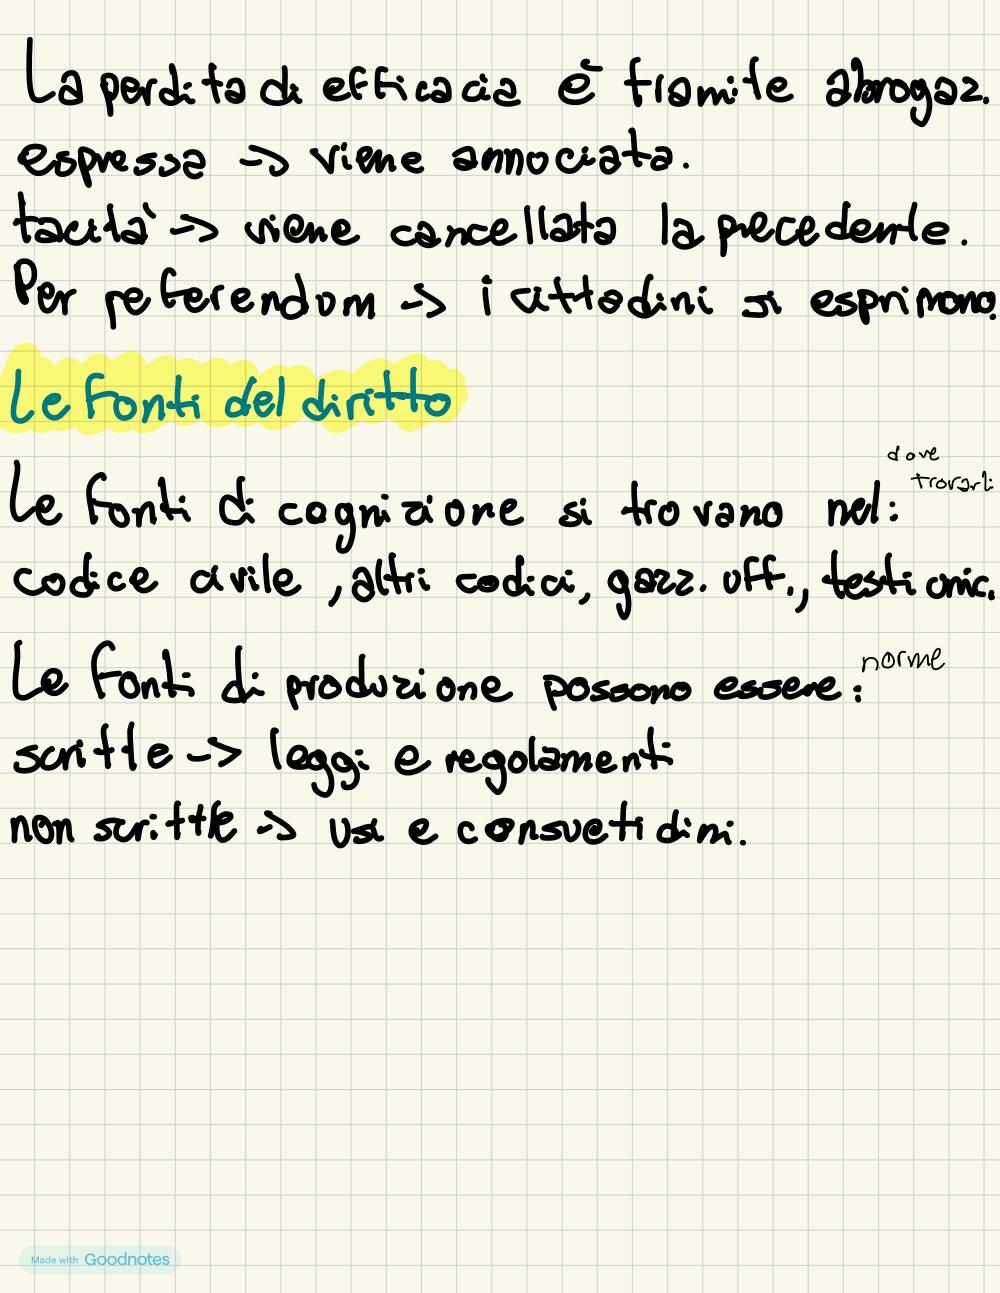 La perdita di efficacia è tramite abrogaz.
espressa -> viene annociata.
tacità -> viene cancellata la precedente.
Per referendum -> i cittadini si esprimono.
Le fonti del diritto
dove
trovarli
Le fonti di cognizione si trovano nel:
codice civile, altri codici, gazz. uff., testi unic.
norme
Le fonti di produzione possono essere:
scritte -> leggi e regolamenti
non scritte -> usi e consuetidini.
Made with Goodnotes